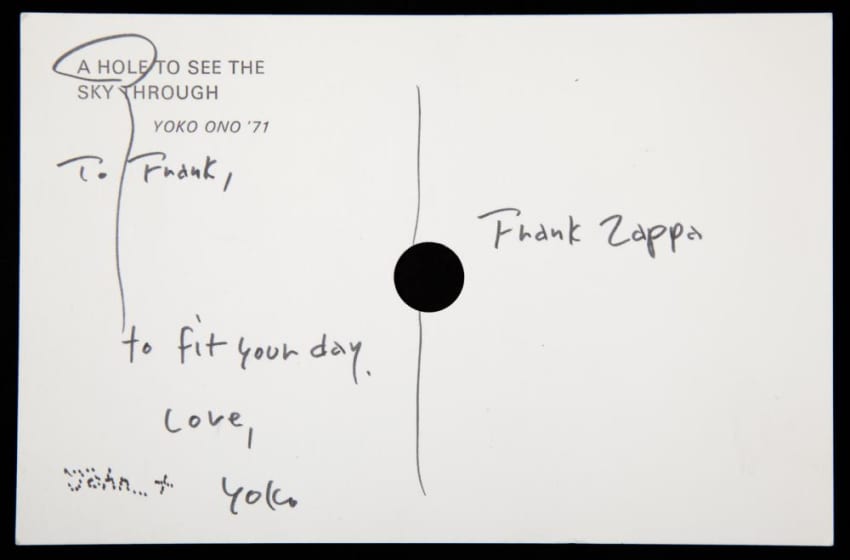 A HOLE TO SEE THE
SKY THROUGH
YOKO ONO '71
To Frank,
to fit your day.
Love,
John + Yoko
Frank Zappa